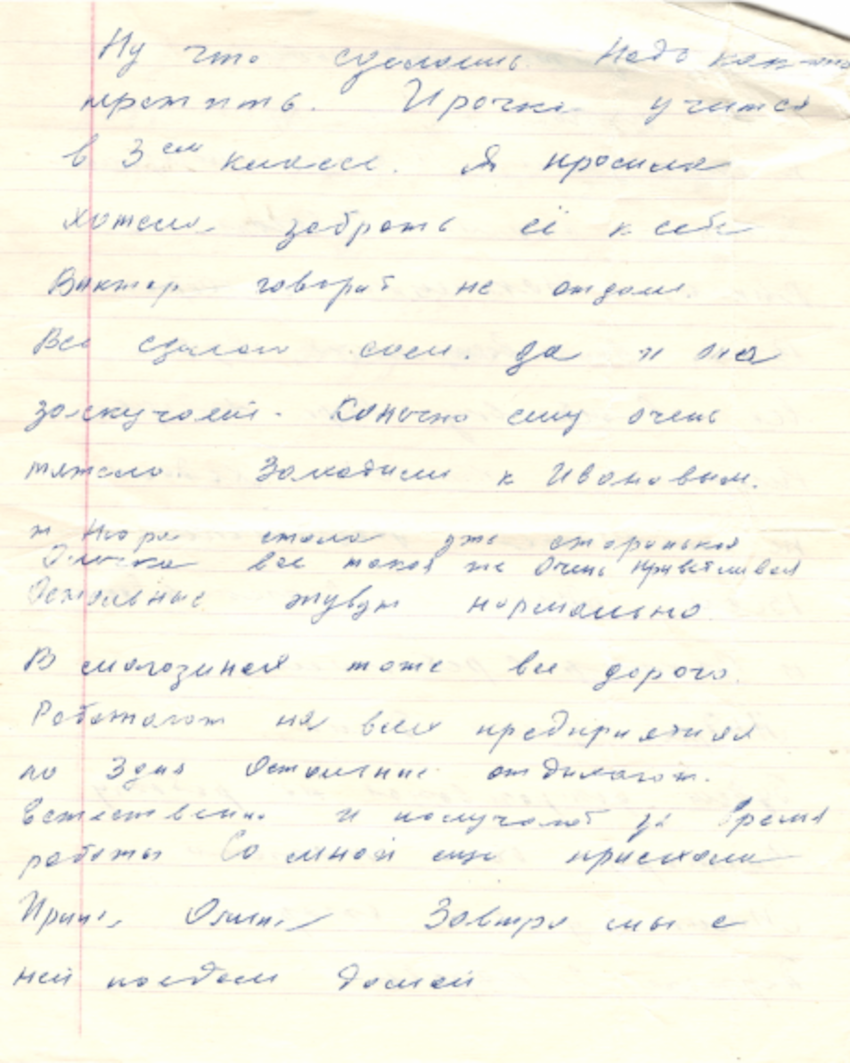 Ну что сделаешь. Надо как-то
прожить. Ирочка учится
в 3ем классе. Я просила
хотела забрать её к себе
Виктор говорит не отдам.
Все сделаю сам. да и она
заскучает. Конечно ему очень
тяжело Заходили к Ивановым.
т Нюра стала уже старенькая
Олечка все такая же Очень приветливая
Остальные живут нормально
В магазинах тоже все дорого.
Работают на всех предприятиях
по 3 дня Остальные отдыхают.
Естественно и получают за время
работы Со мной еще приехала
Ирина Завтра мы с
ней поедем домой